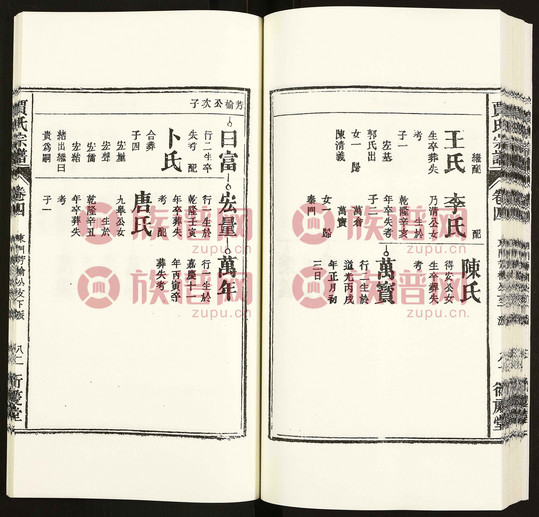 繼配
王氏
生卒葬失
考
子一
宏基
郭氏出
女一歸
陳清義
配
李氏
乃清公女
生於
乾隆辛亥
年卒失考
子二
萬倉
萬寶
女一歸
秦四
陳氏
得宏公女
生卒葬失
考
萬寶
行二生於
道光丙戌
年正月初
三日
賈氏宗譜
卷四
芳榆公次子
曰富
行二生卒
失考 配
卜氏
合葬
子四
宏量
宏聲
宏儒
宏緒
緒出繼曰
貴爲嗣
宏量
行一生於
乾隆壬寅
年卒葬失
考 配
唐氏
九舉公女
生於
乾隆辛丑
年卒葬失
考
子一
萬年
行一生於
嘉慶十一
年丙寅卒
葬失考
賈氏宗譜
卷四
東門芳榆公支下派
八二
衍慶堂
族譜网
zupu.cn
族譜网
zupu.cn
族譜网
zupu.cn
族譜网
zupu.cn